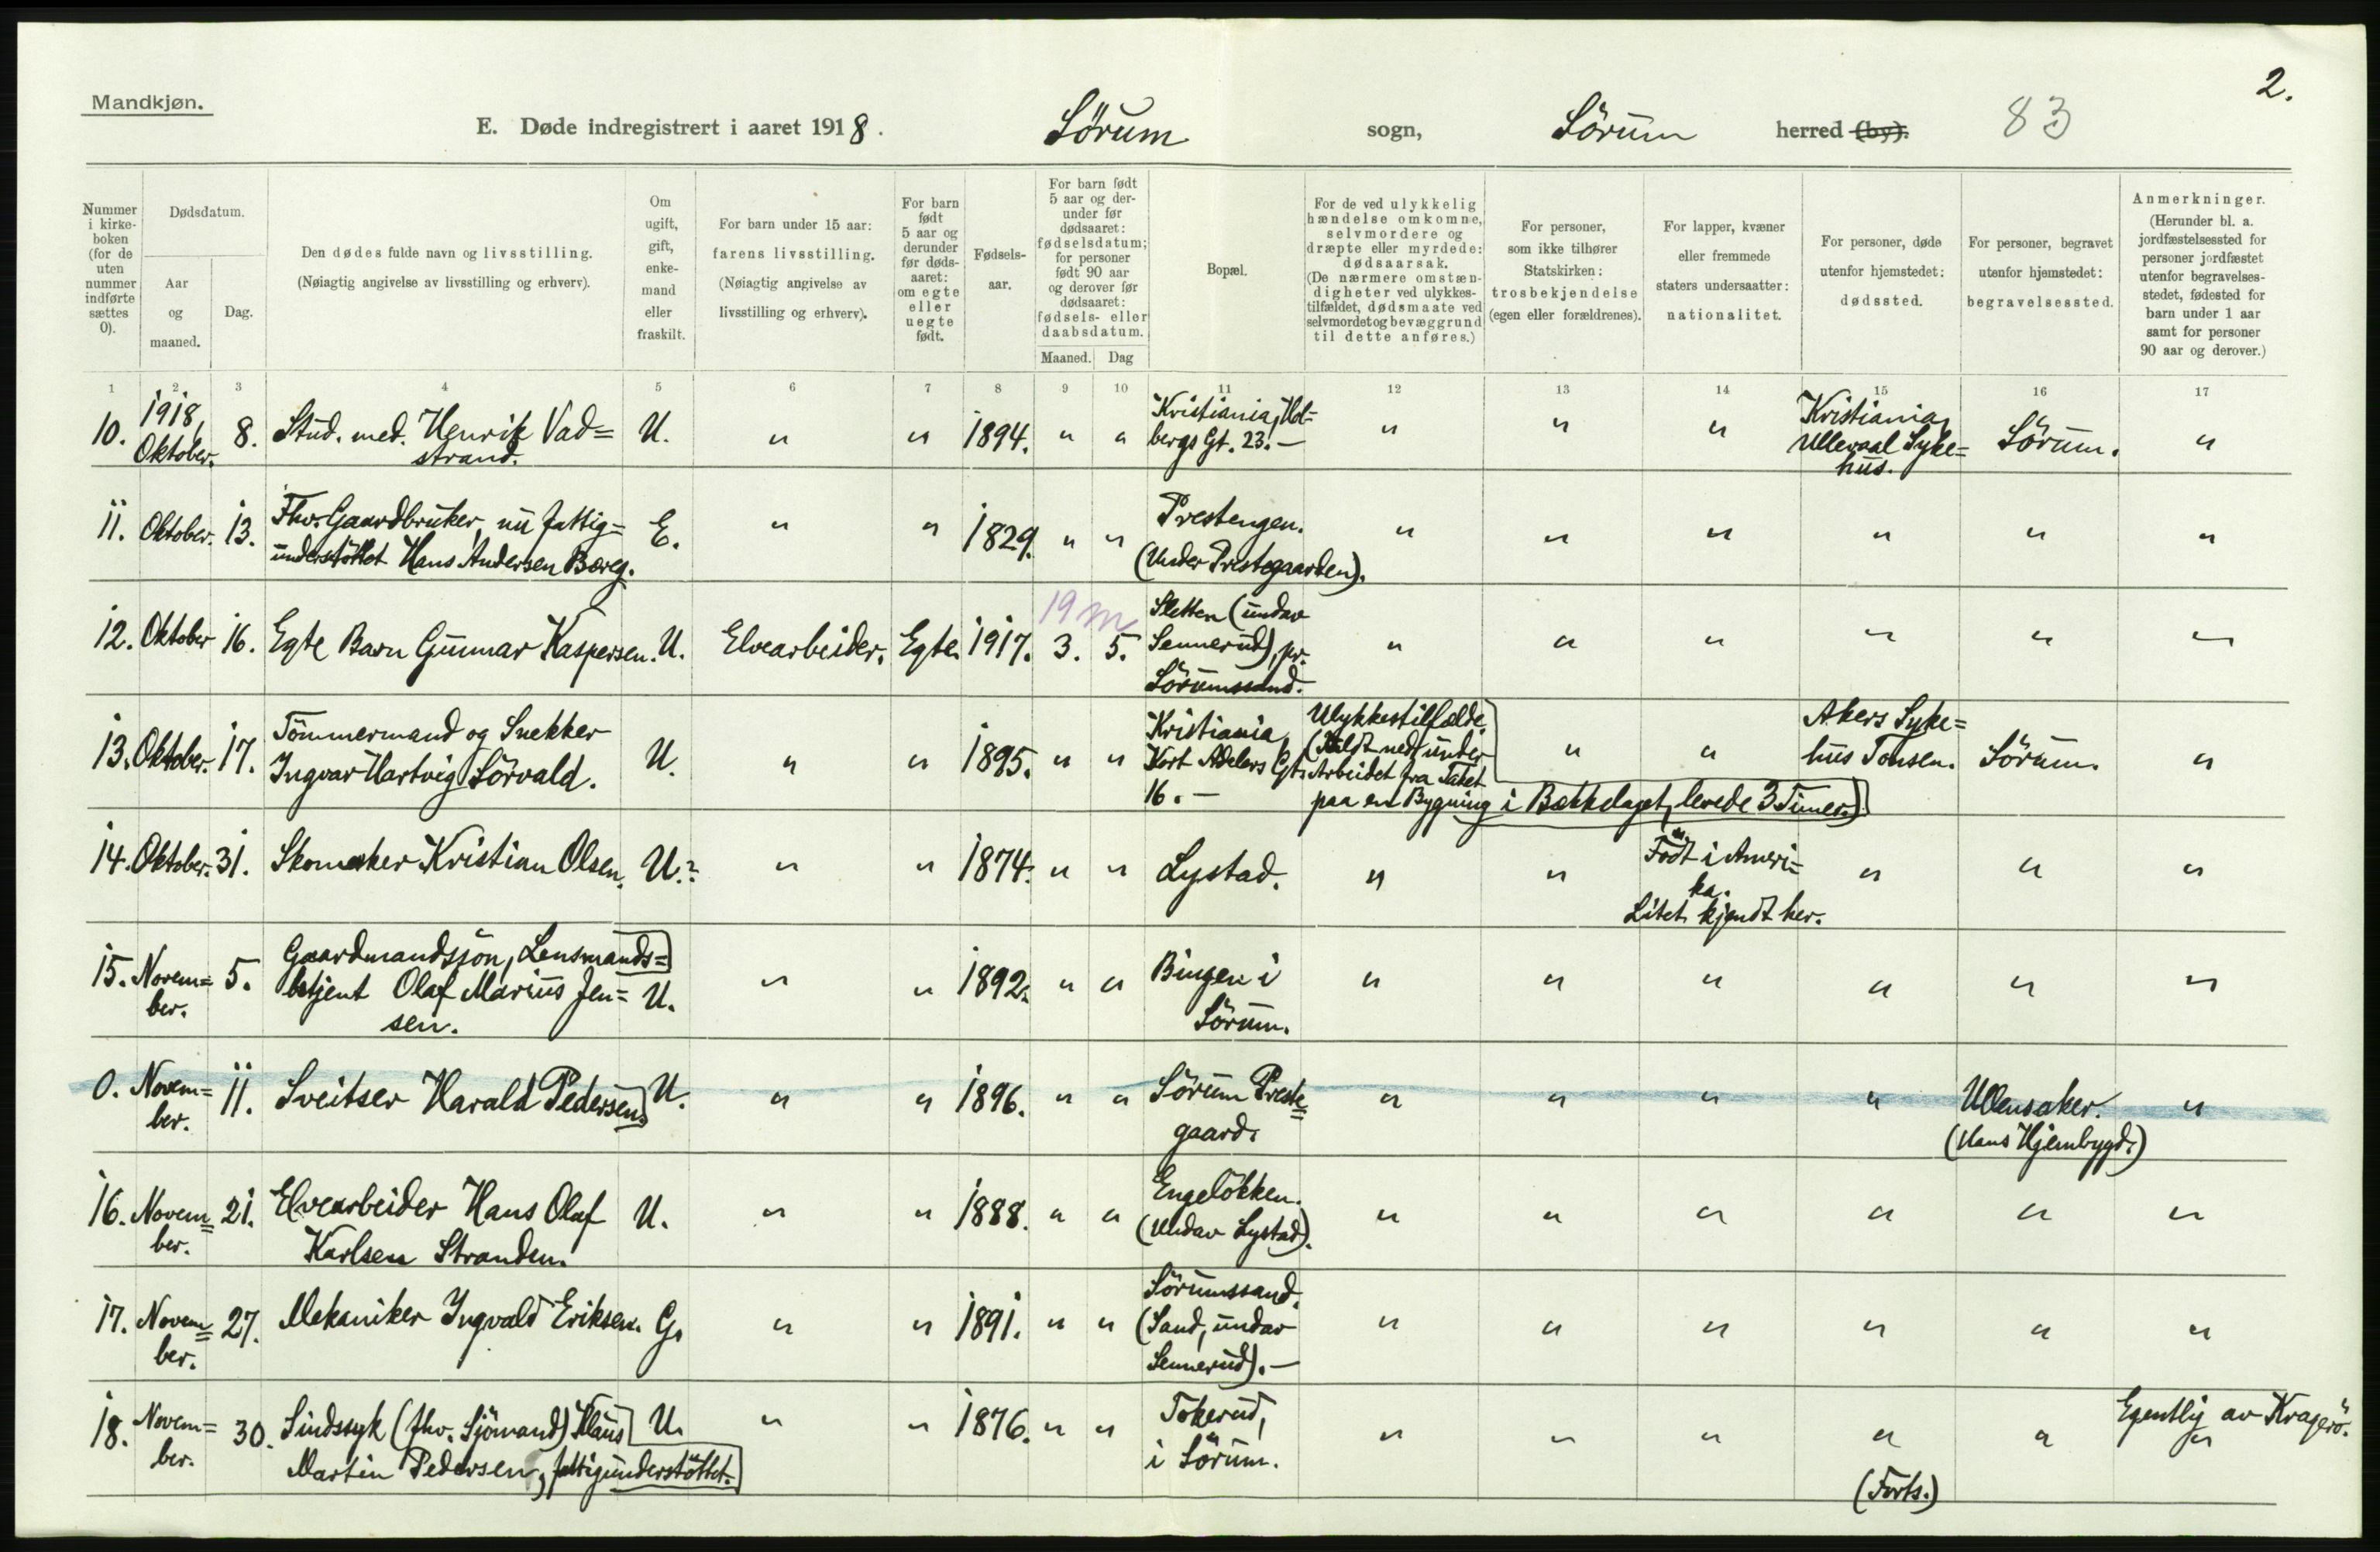 2.
Mandkjøn.
E. Døde indregistrert i aaret 1918. Sörum sogn, Sörum herred (by). 83
Nummer i kirke-boken (for de uten nummer indførte sættes 0).
Dødsdatum.
Aar og maaned.
Dag.
Den dødes fulde navn og livsstilling.
(Nøiagtig angivelse av livsstilling og erhverv).
Om ugift, gift, enke-mand eller fraskilt.
For barn under 15 aar: farens livsstilling.
(Nøiagtig angivelse av livsstilling og erhverv).
For barn født 5 aar og derunder før døds-aaret: om egte eller uegte født.
Fødsels-aar.
For barn født 5 aar og der-under før dødsaaret: fødselsdatum; for personer født 90 aar og derover før dødsaaret: fødsels- eller daabsdatum.
Maaned. Dag
Bopæl.
For de ved ulykkelig hændelse omkomne, selvmordere og dræpte eller myrdede: dødsaarsak.
(De nærmere omstæn-digheter ved ulykkes-tilfældet, dødsmaate ved selvmordet og bevæggrund til dette anføres.)
For personer, som ikke tilhører Statskirken: trosbekjendelse (egen eller forældrenes).
For lapper, kvæner eller fremmede staters undersaatter: nationalitet.
For personer, døde utenfor hjemstedet: dødssted.
For personer, begravet utenfor hjemstedet: begravelsessted.
Anmerkninger.
(Herunder bl. a. jordfæstelsessted for personer jordfæstet utenfor begravelses-stedet, fødested for barn under 1 aar samt for personer 90 aar og derover.)
1 2 3 4 5 6 7 8 9 10 11 12 13 14 15 16 17
10. 1918, Oktober. 8. Stud. med. Henrik Vad=strand. U. " " 1894. " " Kristiania, Hol=bergs Gt. 23.— " " " Kristiania, Ullevaal Syke=hus. Sörum. "
11. Oktober. 13. Fhv. Gaardbruker, nu fattig=understöttet Hans Andersen Boreg. E. " " 1829. " " Prestengen. (Under Prestegaarden). " " " " " "
19 m
12. Oktober 16. Egte Barn Gunnar Kaspersen. U. Elvearbeider. Egte. 1917. 3. 5. Sletten (undav Sennerud), pr. Sörumssand. " " " " " "
13. Oktober. 17. Tömmermand og Snekker Ingvar Hartvig Sörvald. U. " " 1895. " " Kristiania, Kort Adelers Gt. 16.— Ulykkestilfælde (Faldt ned under Arbeidet fra Taket paa en Bygning i Bækkelaget, levede 3 Timer.) " " Akers Syke=hus Tonsen. Sörum. "
14. Oktober. 31. Skomaker Kristian Olsen. U.? " " 1874. " " Lystad. " " Födt i Ameri=ka. Litet kjendt her. " " "
15. Novem=ber. 5. Gaardmandssön, Lensmands=betjent Olaf Marius Jen=sen. U. " " 1892. " " Bingen i Sörum. " " " " " "
0. Novem=ber. 11. Sveitser Harald Pedersen. U. " " 1896. " " Sörum Preste=gaard. " " " " Ullensaker. (Hans Hjembygd.) "
16. Novem=ber. 21. Elvearbeider Hans Olaf Karlsen Stranden. U. " " 1888. " " Engelökken. (Undav Lystad). " " " " " "
17. Novem=ber. 27. Mekaniker Ingvald Eriksen. G. " " 1891. " " Sörumssand. (Sand, undav Sennerud).— " " " " " "
18. Novem=ber. 30. Sindssyk (fhv. Sjömand) Klaus Martin Pedersen, fattigunderstöttet. U. " " 1876. " " Tokerud, i Sörum. " " " " " Egentlig av Kragerö. "
(Forts.)